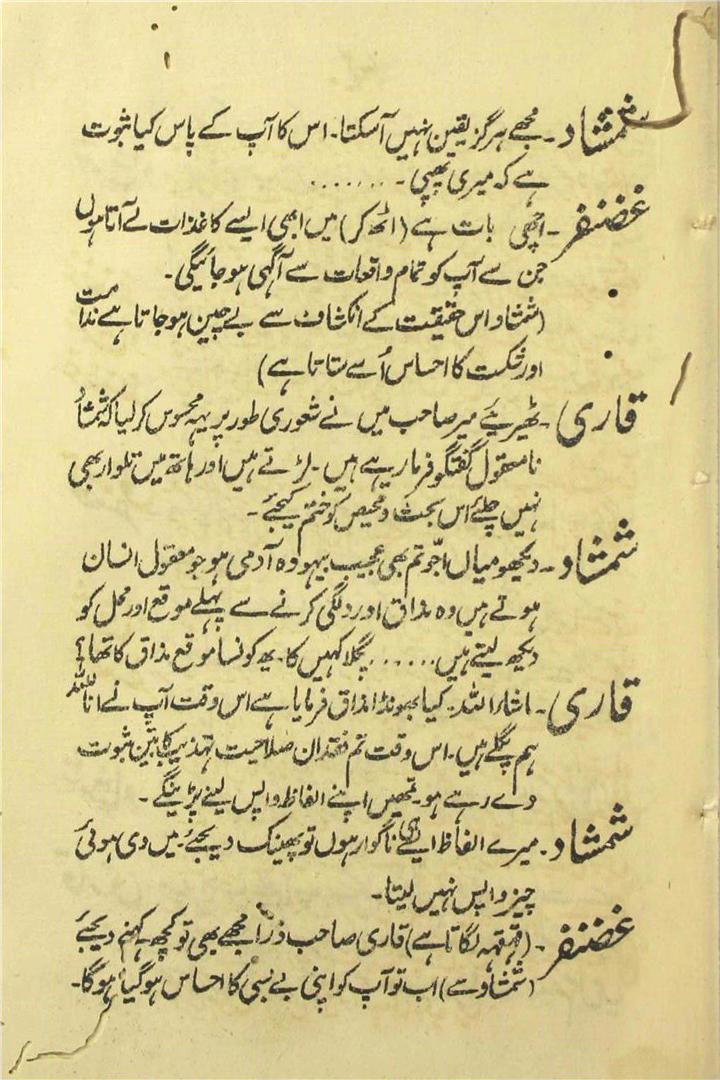 شمشاد۔ مجھے ہرگز یقین نہیں آسکتا۔ اس کا آپ کے پاس کیا ثبوت
ہے کہ میری پھپی۔.......
غضنفر۔ اچھی بات ہے (اٹھ کر) میں ابھی ایسے کاغذات لے آتا ہوں
جن سے آپ کو تمام واقعات سے آگہی ہوجائیگی۔
(شمشاد اس حقیقت کے انکشاف سے بے چین ہوجاتا ہے ندامت
اور شکست کا احساس اُسے ستاتا ہے)
قاری۔ ٹھیریئے میر صاحب میں نے شعوری طور پر یہہ محسوس کرلیا کہ شمشاد
نامعقول گفتگو فرما رہے ہیں۔ لڑتے ہیں اور ہاتھ میں تلوار بھی
نہیں چلئے اس بحث و محیص کو ختم کیجئے۔
شمشاد۔ دیکھو میاں اجّو تم بھی عجیب بیہودہ آدمی ہو جو معقول انسان
ہوتے ہیں وہ مذاق اور دلگی کرنے سے پہلے موقع اور محل کو
دیکھ لیتے ہیں...... پگلا کہیں کا۔ یہ کونسا موقع مذاق کا تھا؟
قاری۔ ماشاء اللہ۔ کیا بھونڈا مذاق فرمایا ہے اس وقت آپ نے انا للہ
ہم پگلے ہیں۔ اس وقت تم فقدان صلاحیت تہذیب کا بیّن ثبوت
دے رہے ہو۔ تمھیں اپنے الفاظ واپس لینے پڑینگے۔
شمشاد۔ میرے الفاظ ایسے ہی ناگوار ہوں تو پھینک دیجئے۔ میں دی ہوئی
چیز واپس نہیں لیتا۔
غضنفر۔ (قہقہہ لگاتا ہے) قاری صاحب ذرا مجھے بھی تو کچھ کہنے دیجئے
(شمشاد سے) اب تو آپ کو اپنی بے بسی کا احساس ہوگیا ہوگا۔